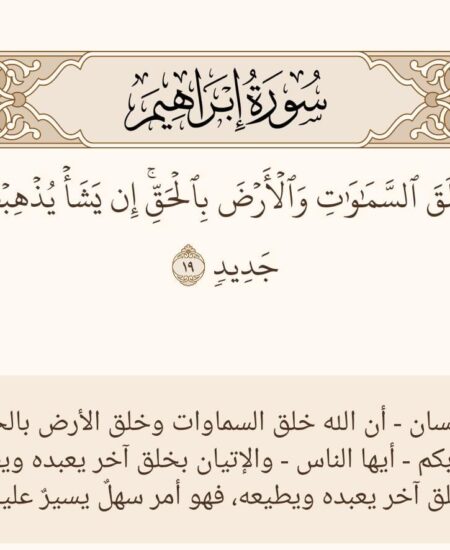 سُورَةُ إِبْرَاهِيمَ
ٱلسَّمَٰوَٰتِ وَٱلْأَرْضَ بِٱلْحَقِّ ۚ إِن يَشَأْ
جَدِيدٍ ١٩
- أن الله خلق السماوات وخلق الأرض
- أيها الناس - والإتيان بخلق آخر يعبده
آخر يعبده ويطيعه، فهو أمر سهلٌ يسيرٌ